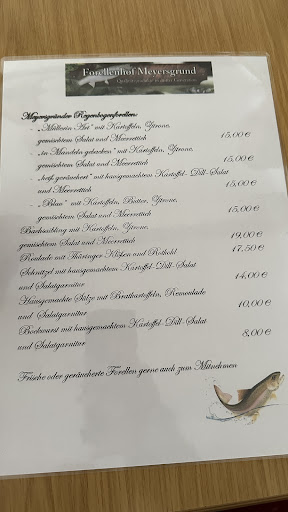 Forellenhof Meyersgrund
Meyersgründer Regenbogenforellen:
- „Müllerin Art" mit Kartoffeln, Zitrone,
gemischtem Salat und Meerrettich 15,00 €
- „in Mandeln gebacken" mit Kartoffeln, Zitrone,
gemischtem Salat und Meerrettich 15,00 €
- „heiß geräuchert" mit hausgemachtem Kartoffel-Dill-Salat
und Meerrettich 15,00 €
- „Blau" mit Kartoffeln, Butter, Zitrone,
gemischtem Salat und Meerrettich 15,00 €
Bachsaibling mit Kartoffeln, Zitrone,
gemischtem Salat und Meerrettich 19,00 €
Roulade mit Thüringer Klößen und Rotkohl 17,50 €
Schnitzel mit hausgemachtem Kartoffel-Dill-Salat
und Salatgarnitur 14,00 €
Hausgemachte Sülze mit Bratkartoffeln, Remoulade
und Salatgarnitur 10,00 €
Bockwurst mit hausgemachtem Kartoffel-Dill-Salat
und Salatgarnitur 8,00 €
Frische oder geräucherte Forellen gerne auch zum Mitnehmen